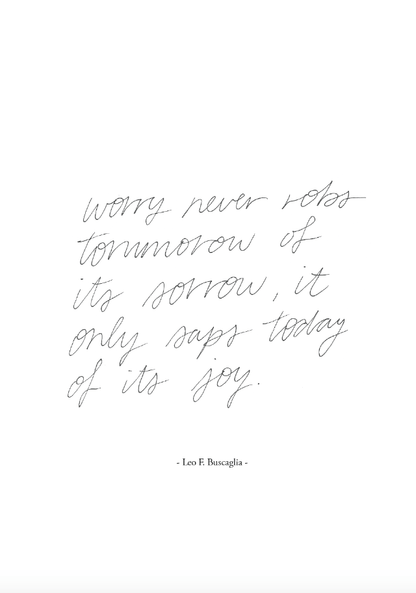 worry never robs
tommorow of
its sorrow, it
only saps today
of its joy.
- Leo F. Buscaglia -